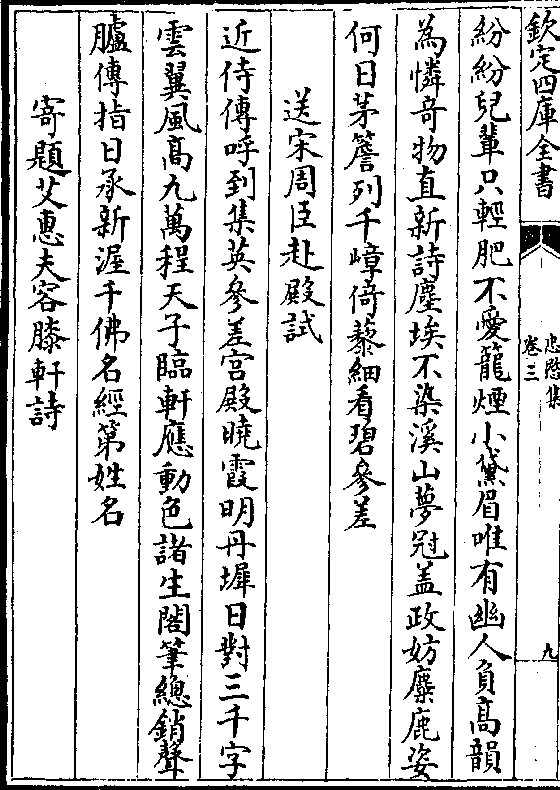 欽定四庫全書
忠愍集
卷三
九
紛紛兒輩只輕肥不愛籠煙小黛眉唯有幽人負高韻
為憐奇物直新詩塵埃不染溪山夢冠盖政妨麋鹿姿
何日茅簷列千嶂倚藜細看碧參差
送宋周臣赴殿試
近侍傳呼到集英參差宫殿曉霞明丹墀日對三千字
雲翼風高九萬程天子臨軒應動色諸生閣筆總銷聲
臚傳指日承新渥千佛名經第姓名
寄題艾惠夫容膝軒詩